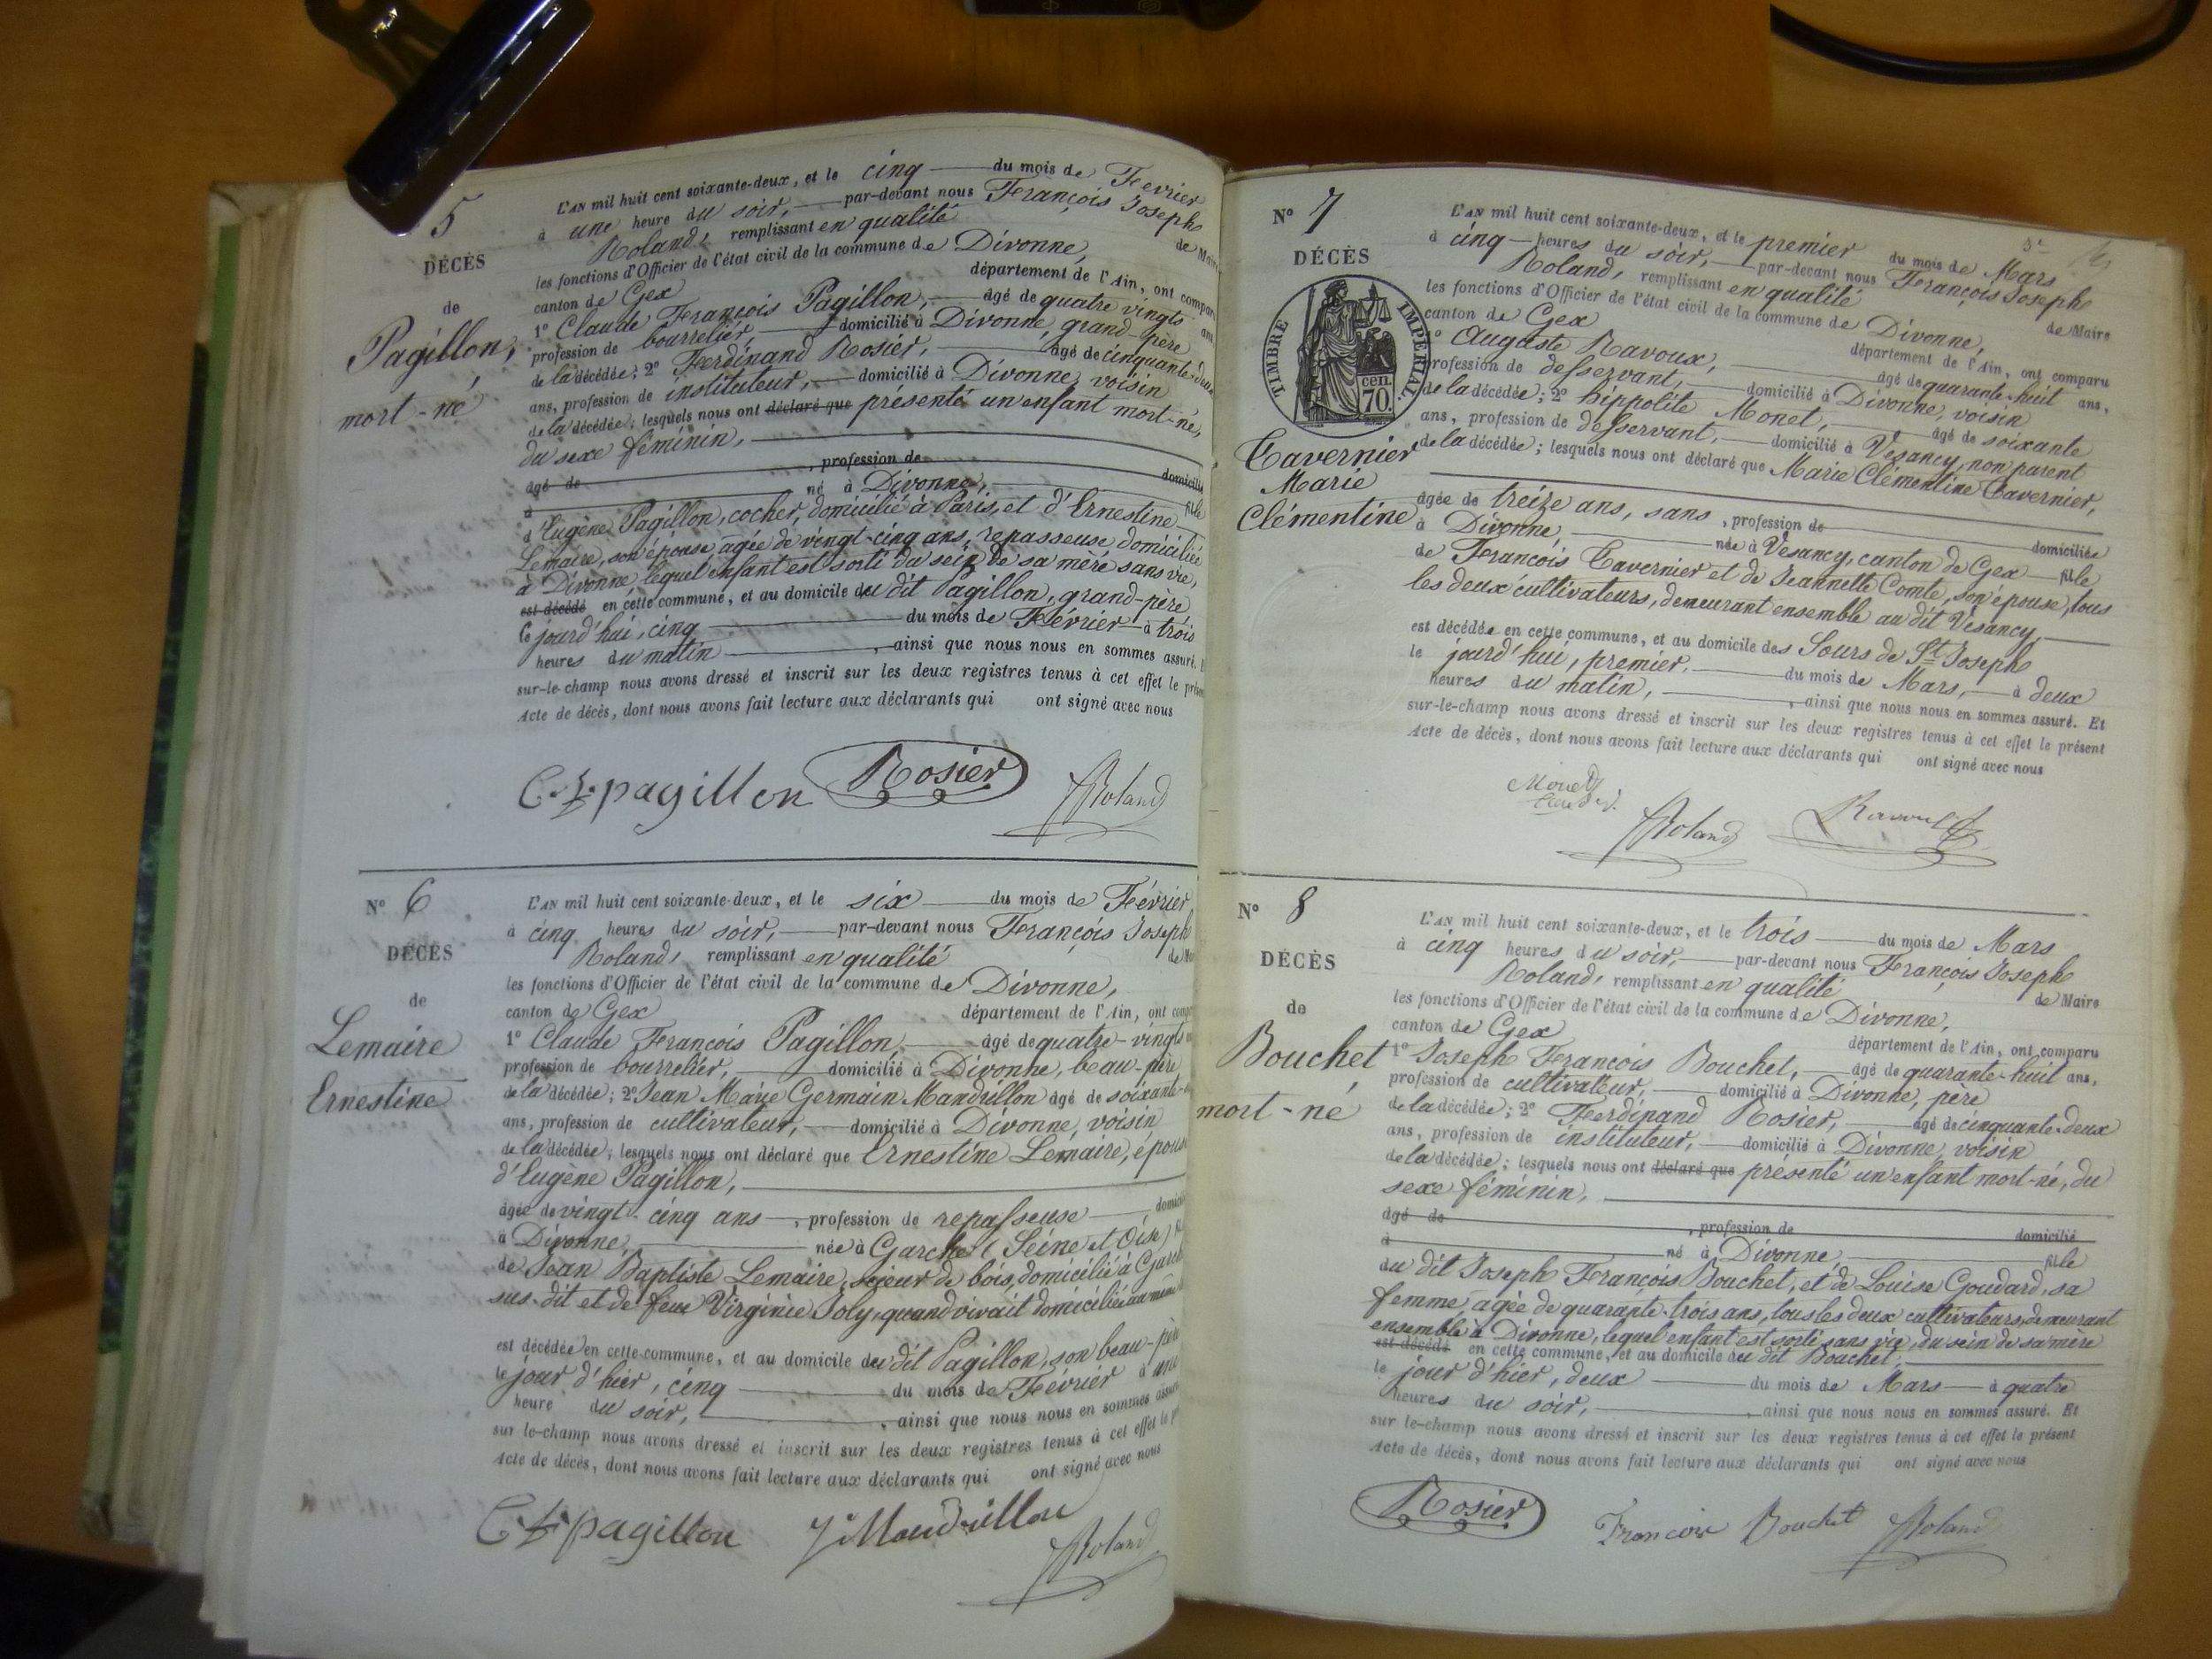 5
DÉCÈS
de
Pagillon,
mort-né
L'AN mil huit cent soixante-deux, et le cinq du mois de Fevrier
à une heure du soir, par-devant nous François Joseph
Roland, remplissant en qualité de Maire
les fonctions d'Officier de l'état civil de la commune de Divonne,
canton de Gex département de l'Ain, ont comparu
1° Claude François Pagillon, âgé de quatre vingts ans
profession de bourrelier, domicilié à Divonne, grand-père
de la décédée; 2° Ferdinand Rosier, âgé de cinquante-deux
ans, profession de instituteur, domicilié à Divonne, voisin
de la décédée; lesquels nous ont déclaré que présenté un enfant mort-né,
du sexe féminin,
âgé de , profession de domicilié
à né à Divonne, fille
d'Eugène Pagillon, cocher, domicilié à Paris, et d'Ernestine
Lemaire, son épouse, âgée de vingt-cinq ans, repasseuse domiciliée
à Divonne, lequel enfant est sorti du sein de sa mère sans vie,
est décédé en cette commune, et au domicile du dit Pagillon, grand-père
le jourd'hui, cinq du mois de Février à trois
heures du matin , ainsi que nous nous en sommes assuré.
sur-le-champ nous avons dressé et inscrit sur les deux registres tenus à cet effet le présent
Acte de décès, dont nous avons fait lecture aux déclarants qui ont signé avec nous
C. F. pagillon Rosier Roland
N° 6
DÉCÈS
de
Lemaire
Ernestine
L'AN mil huit cent soixante-deux, et le six du mois de Février
à cinq heures du soir, par-devant nous François Joseph
Roland, remplissant en qualité de
les fonctions d'Officier de l'état civil de la commune de Divonne,
canton de Gex département de l'Ain, ont
1° Claude François Pagillon, âgé de quatre-vingts
profession de bourrelier, domicilié à Divonne, beau-père
de la décédée; 2° Jean Marie Germain Mandrillon âgé de soixante-
ans, profession de cultivateur, domicilié à Divonne, voisin
de la décédée; lesquels nous ont déclaré que Ernestine Lemaire, épouse
d'Eugène Pagillon,
âgée de vingt-cinq ans, profession de repasseuse
à Divonne, née à Garches (Seine et Oise)
de Jean Baptiste Lemaire, scieur de bois, domicilié à
sus-dit et de feue Virginie Joly, quand vivait domiciliée au même
est décédée en cette commune, et au domicile du dit Pagillon, son beau-père
le jour d'hier, cinq du mois de Février à une
heure du soir, , ainsi que nous nous en sommes assuré
sur le-champ nous avons dressé et inscrit sur les deux registres tenus à cet effet le
Acte de décès, dont nous avons fait lecture aux déclarants qui ont signé avec nous
C. F. pagillon J. Mandrillon Roland
N° 7
3e
DÉCÈS
TIMBRE IMPÉRIAL
cen.
70.
Tavernier
Marie
Clémentine
L'AN mil huit cent soixante-deux, et le premier du mois de Mars
à cinq heures du soir, par-devant nous François Joseph
Roland, remplissant en qualité de Maire
les fonctions d'Officier de l'état civil de la commune de Divonne,
canton de Gex département de l'Ain, ont comparu
1° Auguste Ravoux, âgé de quarante-huit ans,
profession de desservant, domicilié à Divonne, voisin
de la décédée; 2° hippolite Monet, âgé de soixante
ans, profession de desservant, domicilié à Vesancy, non parent
de la décédée; lesquels nous ont déclaré que Marie Clémentine Tavernier,
âgée de treize ans, sans, profession de domiciliée
à Divonne, née à Vesancy, canton de Gex fille
de François Tavernier et de Jeannette Comte, son épouse, tous
les deux cultivateurs, demeurant ensemble au dit Vesancy,
est décédée en cette commune, et au domicile des Sours de St Joseph
le jourd'hui, premier, du mois de Mars, à deux
heures du matin, , ainsi que nous nous en sommes assuré. Et
sur-le-champ nous avons dressé et inscrit sur les deux registres tenus à cet effet le présent
Acte de décès, dont nous avons fait lecture aux déclarants qui ont signé avec nous
Monet
Roland Ravoux
N° 8
DÉCÈS
de
Bouchet
mort-né
L'AN mil huit cent soixante-deux, et le trois du mois de Mars
à cinq heures du soir, par-devant nous François Joseph
Roland, remplissant en qualité de Maire
les fonctions d'Officier de l'état civil de la commune de Divonne,
canton de Gex département de l'Ain, ont comparu
1° Joseph François Bouchet, âgé de quarante-huit ans,
profession de cultivateur, domicilié à Divonne, père
de la décédée; 2° Ferdinand Rosier, âgé de cinquante-deux
ans, profession de instituteur, domicilié à Divonne, voisin
de la décédée; lesquels nous ont déclaré que présenté un enfant mort-né, du
sexe féminin,
âgé de , profession de domicilié
à né à Divonne, fille
du dit Joseph François Bouchet, et de Louise Goudard, sa
femme, agée de quarante-trois ans, tous les deux cultivateurs, demeurant
ensemble à Divonne, lequel enfant est sorti sans vie, du sein de sa mère
est décédé en cette commune, et au domicile du dit Bouchet,
le jour d'hier, deux du mois de Mars à quatre
heures du soir, , ainsi que nous nous en sommes assuré. Et
sur le-champ nous avons dressé et inscrit sur les deux registres tenus à cet effet le présent
Acte de décès, dont nous avons fait lecture aux déclarants qui ont signé avec nous
Rosier François Bouchet Roland